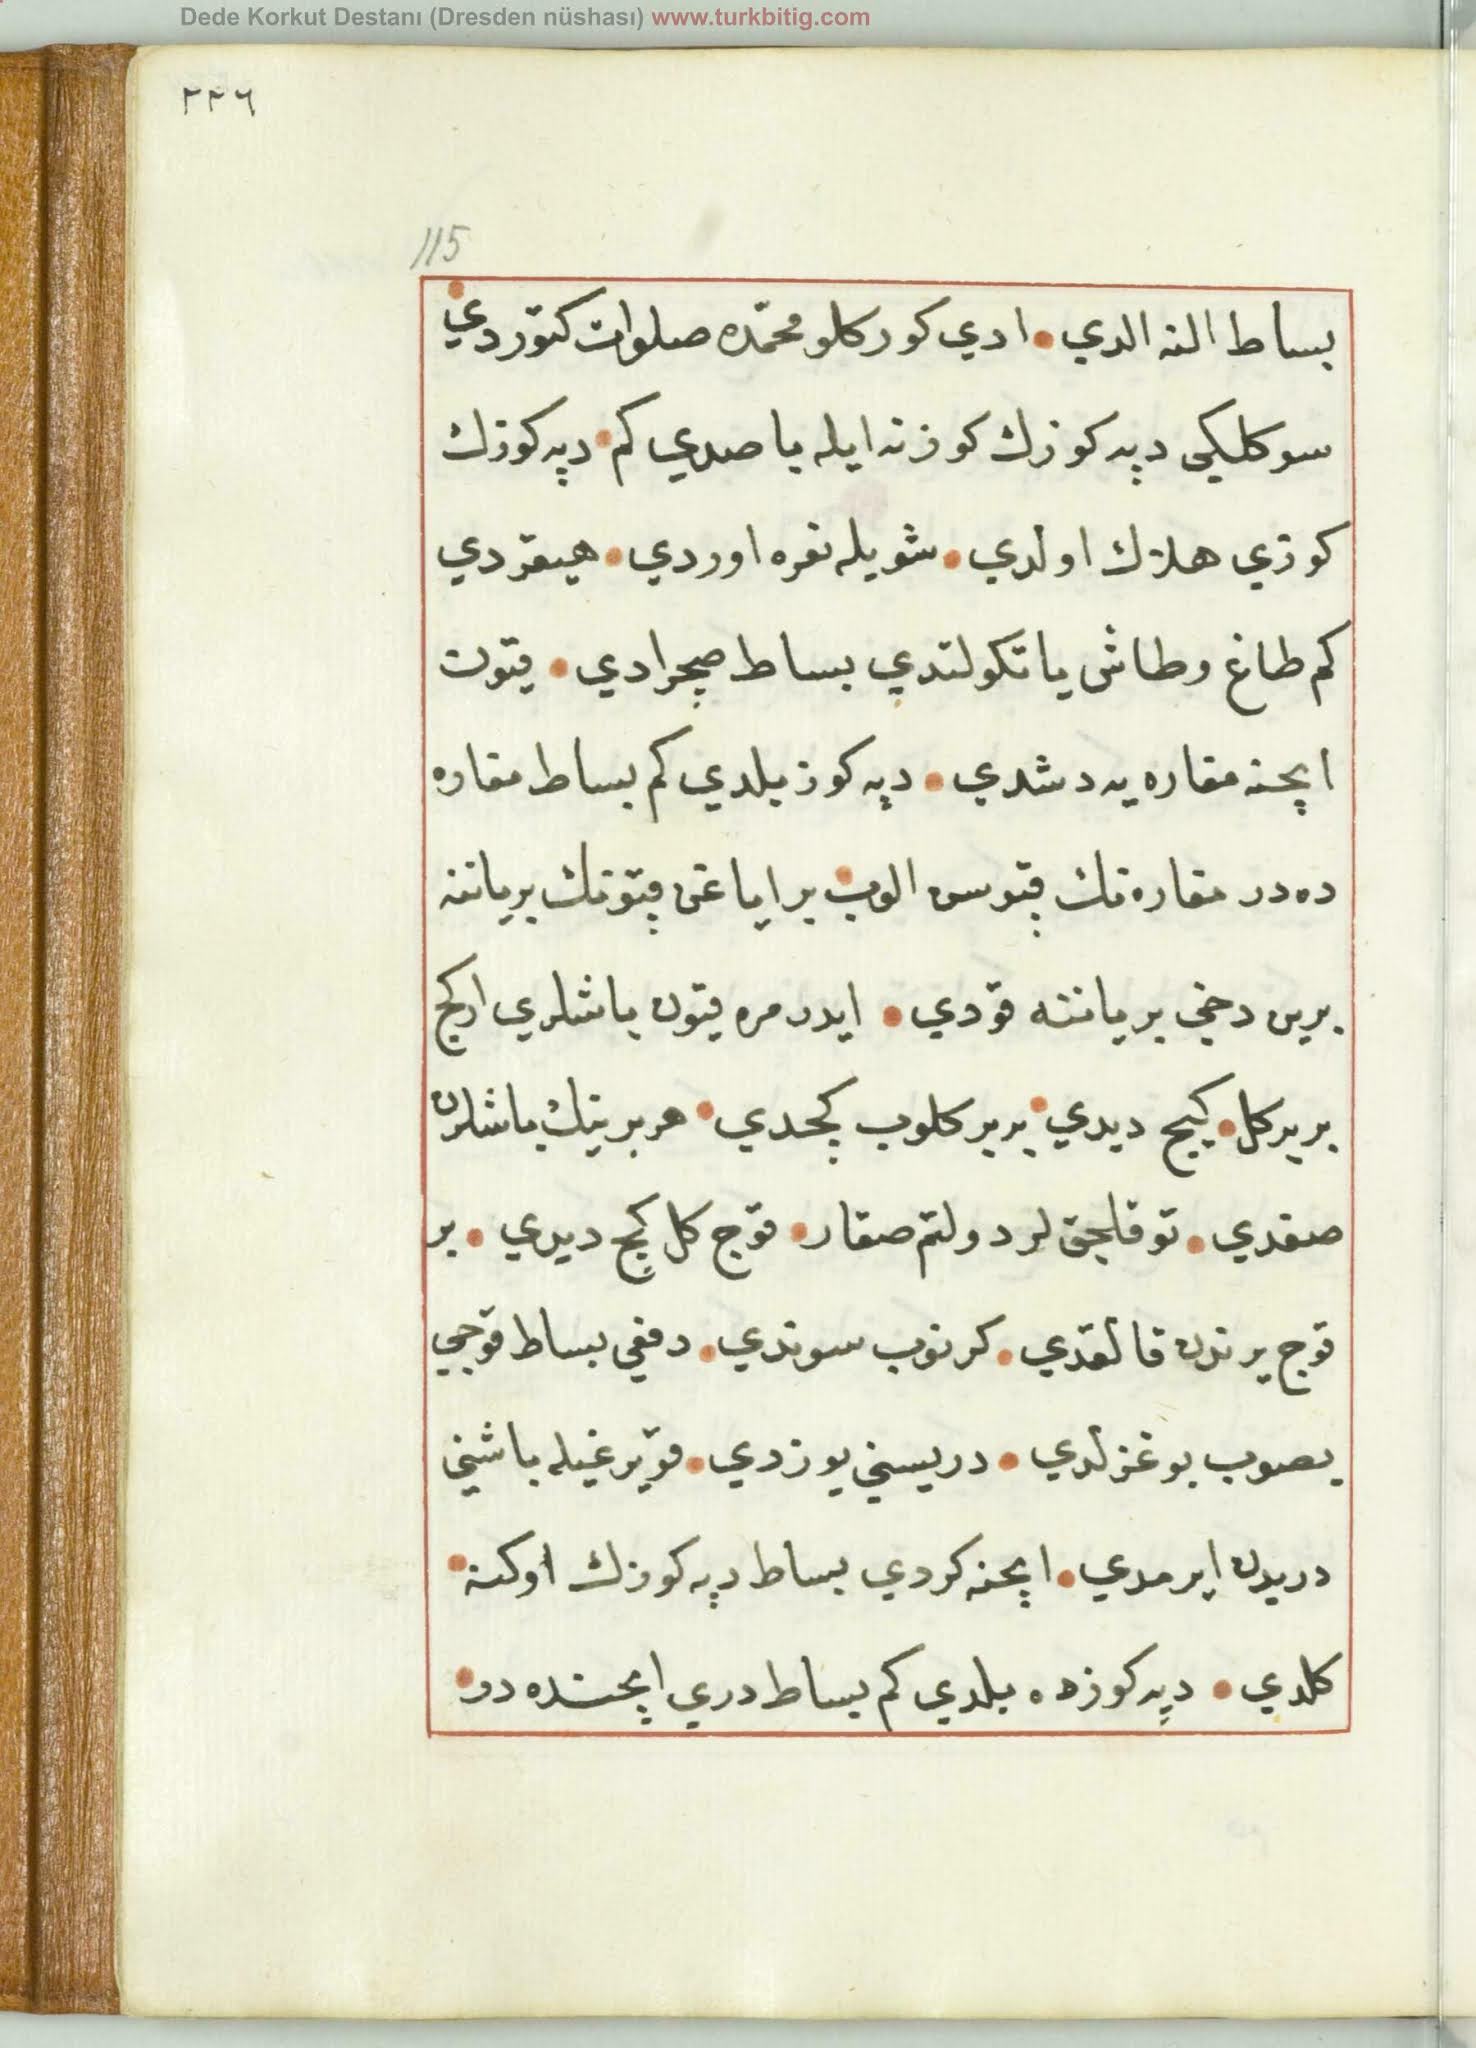 Dede Korkut Destanı (Dresden nüshası) www.turkbitig.com
٢٢٦
115
بساط النه الدي ادي كوركلو محمّده صلوات كتوردي
سوكلكی دپه كوزك كوزنه ايله باصدي كم دپه كوزك
كوزي هلاك اولدي شويله نعره اوردي هيقردي
كم طاغ وطاش يانكولندي بساط صچرادي قيون
اچنه مغاره يه دشدي دپه كوز بلدي كم بساط مغاره
ده در مغاره نك قپوسن الوب بر اياغن قپونك بر ياننه
برين دخی بر ياننه قودي ايدر مره قيون باشلري اركج
بر بر كل كيچ ديدي بر بر كلوب كچدي هر برينك باشلرن
صغدي توقلجقلر دولتم صقار قوج كل كچ ديدي بر
قوج يرندن قالقدي كرنوب سوندي دفعی بساط قوجي
بصوب بوغزلدي دريسني يوزدي قويرغيله باشني
دريدن ايرمدي اچنه كردي بساط دپه كوزك اوكنه
كلدي دپه كوزده بلدي كم بساط دري اچنده در